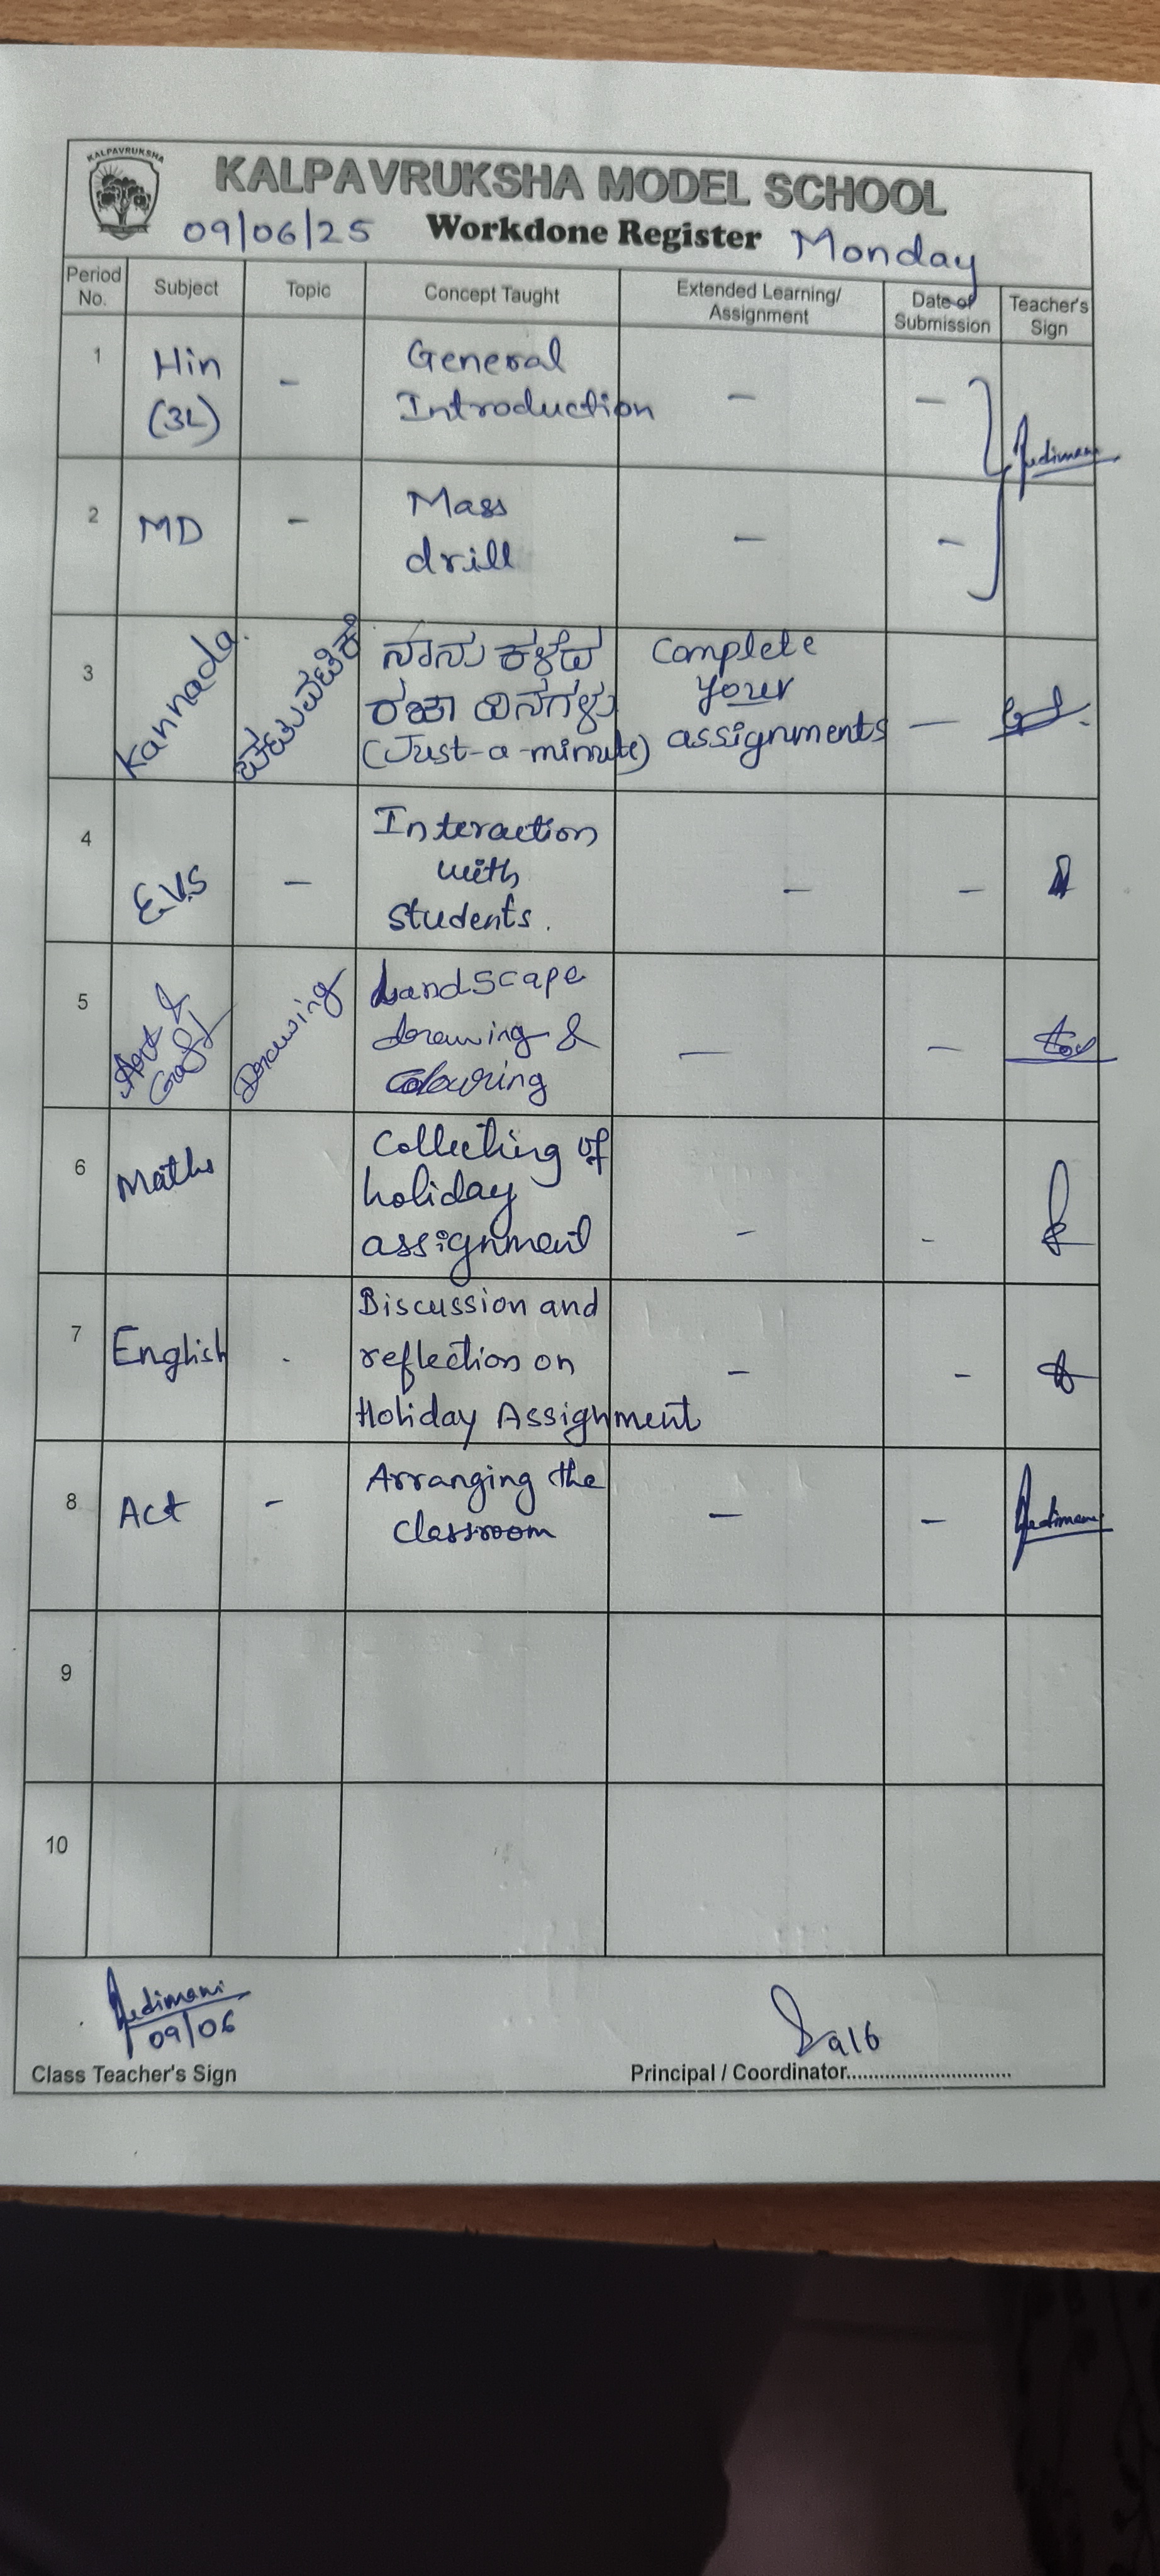 KALPAVRUKSHA
KALPAVRUKSHA MODEL SCHOOL
09/06/25 Workdone Register Monday
Period No. Subject Topic Concept Taught Extended Learning/ Assignment Date of Submission Teacher's Sign
1 Hin (3L) - General Introduction - -
2 MD - Mass drill - -
3 Kannada. ಚಟುವಟಿಕೆ ನಾನು ಕಳೆದ ರಜಾ ದಿನಗಳು (Just-a-minute) Complete your assignments -
4 E.V.S - Interaction with students. - -
5 Art & Craft Drawing Landscape drawing & colouring - -
6 Maths Collecting of holiday assignment - -
7 English . Discussion and reflection on Holiday Assignment - -
8 Act - Arranging the classroom - -
9
10
09/06
Class Teacher's Sign
Principal / Coordinator..............................